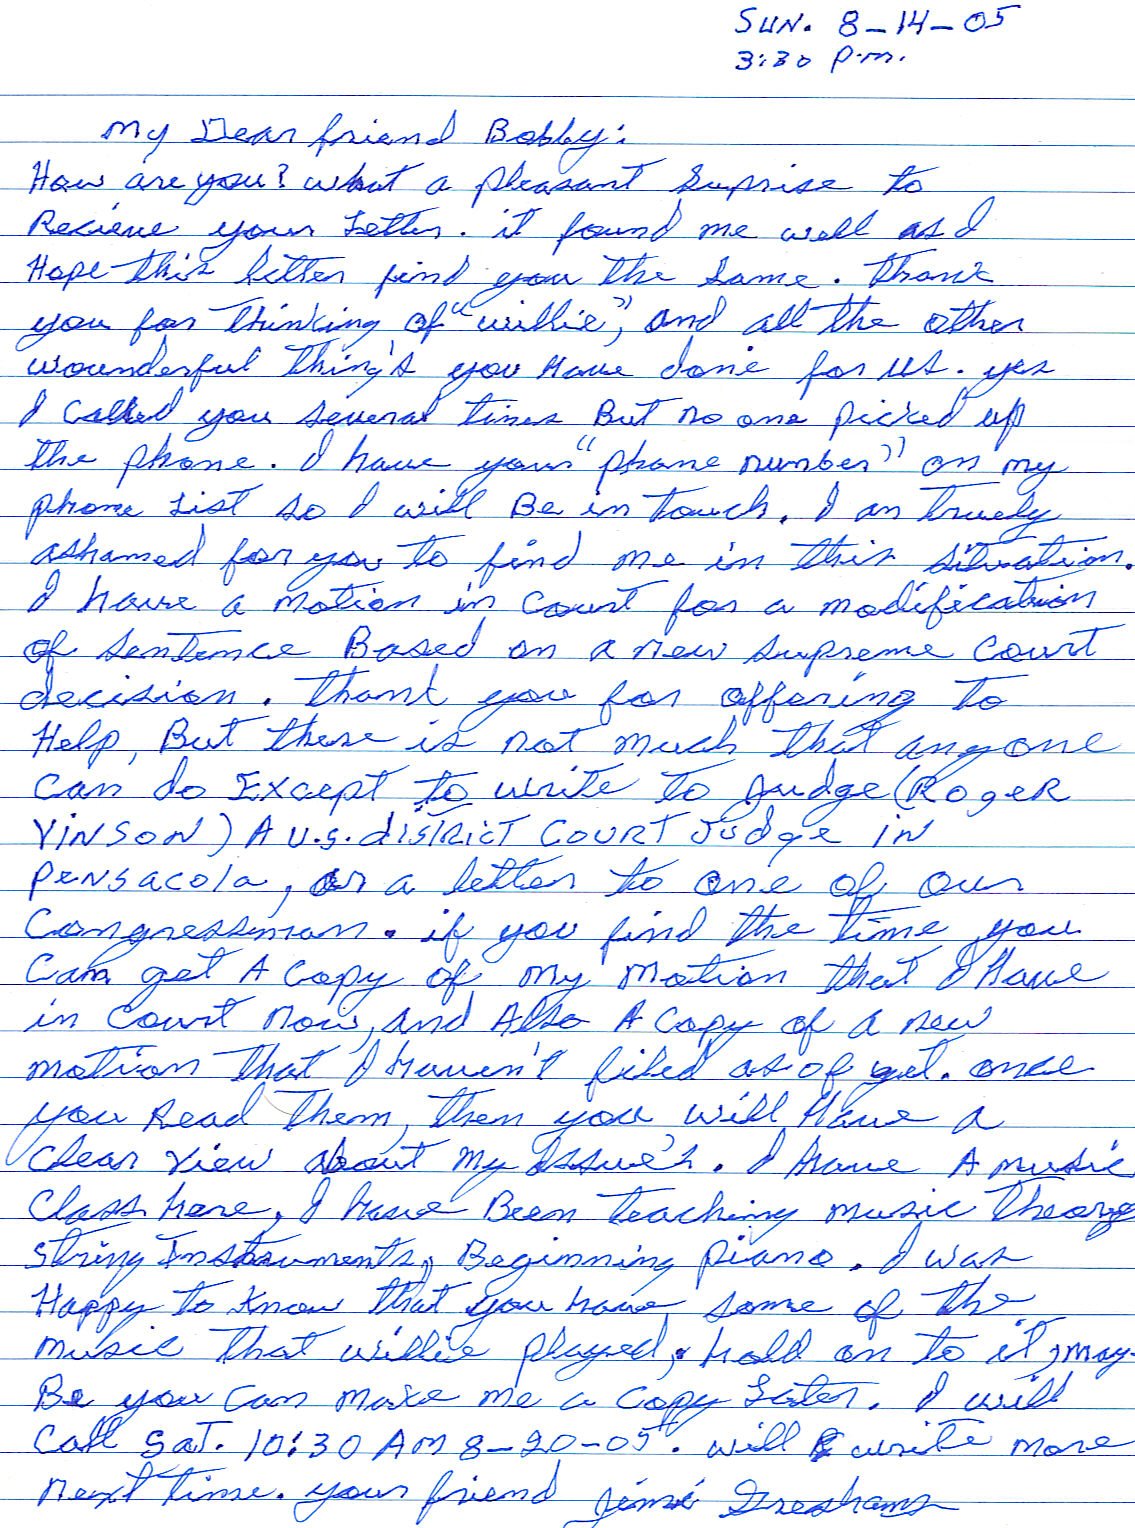 SUN. 8-14-05
3:30 P.m.
My Dear friend Bobby:
How are you? what a pleasant Suprise to
Recieve your Letter. it found me well as I
Hope this letter find you the Same. Thank
you for thinking of "willie", and all the other
wounderful thing's you Have done for us. yes
I Called you several times But no one picked up
the phone. I have your "phone number" on my
phone List so I will Be in touch. I am truely
ashamed for you to find me in this situation.
I have a motion in Court for a modification
of sentence Based on a new supreme Court
decision. Thank you for offering to
Help, But there is not much that anyone
Can do Except to write to Judge (ROGER
VINSON) A U.S. diSTRICT COURT Judge in
Pensacola, or a letter to one of our
Congressman. if you find the time you
Can get A Copy of my motion that I Have
in Court now, and Also A Copy of a new
motion that I Haven't filed as of yet. once
you Read Them, then you will Have a
Clear View about my Issue's. I have A music
Class here, I have Been teaching music theory
string Instruments, Beginning piano. I was
Happy to Know that you have some of the
music that willie played, hold on to it, may-
Be you Can make me a Copy Later. I will
Call Sat. 10:30 AM 8-20-05. will write more
next time. your friend Jimi Greshams